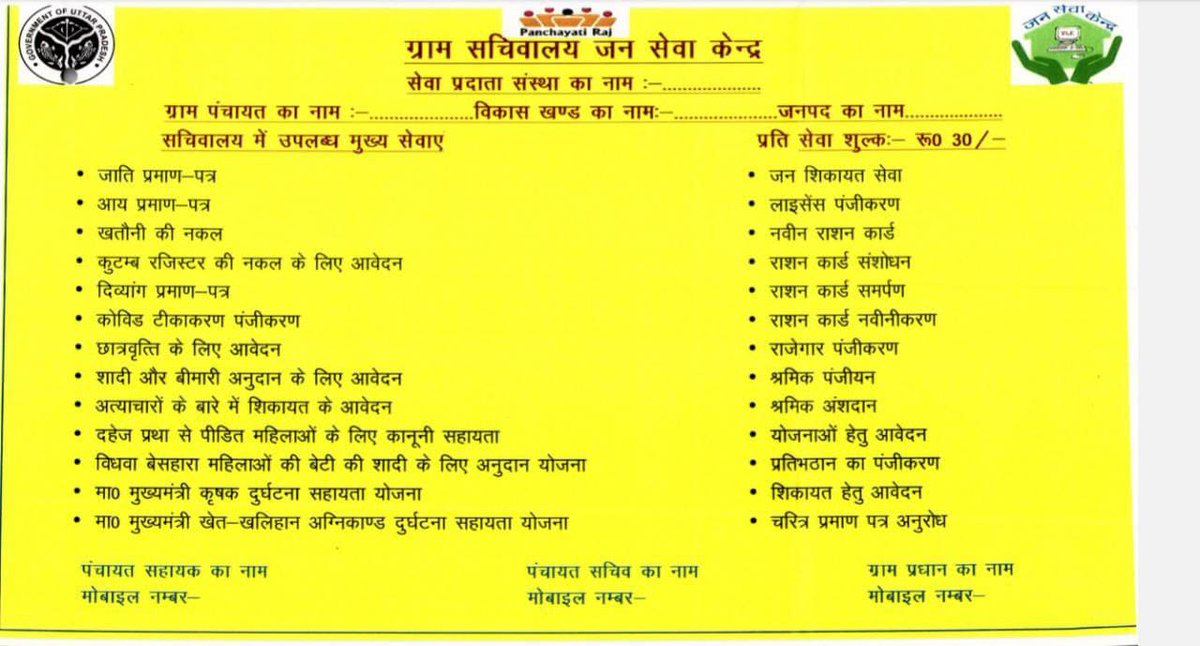 GOVERNMENT OF UTTAR PRADESH
Panchayati Raj
जन सेवा केन्द्र
VLE
ग्राम सचिवालय जन सेवा केन्द्र
सेवा प्रदाता संस्था का नाम :–.....................
ग्राम पंचायत का नाम :–......................विकास खण्ड का नामः–......................जनपद का नाम.....................
सचिवालय में उपलब्ध मुख्य सेवाए
प्रति सेवा शुल्कः– रू0 30/–
• जाति प्रमाण–पत्र
• आय प्रमाण–पत्र
• खतौनी की नकल
• कुटम्ब रजिस्टर की नकल के लिए आवेदन
• दिव्यांग प्रमाण–पत्र
• कोविड टीकाकरण पंजीकरण
• छात्रवृत्ति के लिए आवेदन
• शादी और बीमारी अनुदान के लिए आवेदन
• अत्याचारों के बारे में शिकायत के आवेदन
• दहेज प्रथा से पीडित महिलाओं के लिए कानूनी सहायता
• विधवा बेसहारा महिलाओं की बेटी की शादी के लिए अनुदान योजना
• मा0 मुख्यमंत्री कृषक दुर्घटना सहायता योजना
• मा0 मुख्यमंत्री खेत–खलिहान अग्निकाण्ड दुर्घटना सहायता योजना
• जन शिकायत सेवा
• लाइसेंस पंजीकरण
• नवीन राशन कार्ड
• राशन कार्ड संशोधन
• राशन कार्ड समर्पण
• राशन कार्ड नवीनीकरण
• राजेगार पंजीकरण
• श्रमिक पंजीयन
• श्रमिक अंशदान
• योजनाओं हेतु आवेदन
• प्रतिभठान का पंजीकरण
• शिकायत हेतु आवेदन
• चरित्र प्रमाण पत्र अनुरोध
पंचायत सहायक का नाम
मोबाइल नम्बर–
पंचायत सचिव का नाम
मोबाइल नम्बर–
ग्राम प्रधान का नाम
मोबाइल नम्बर–